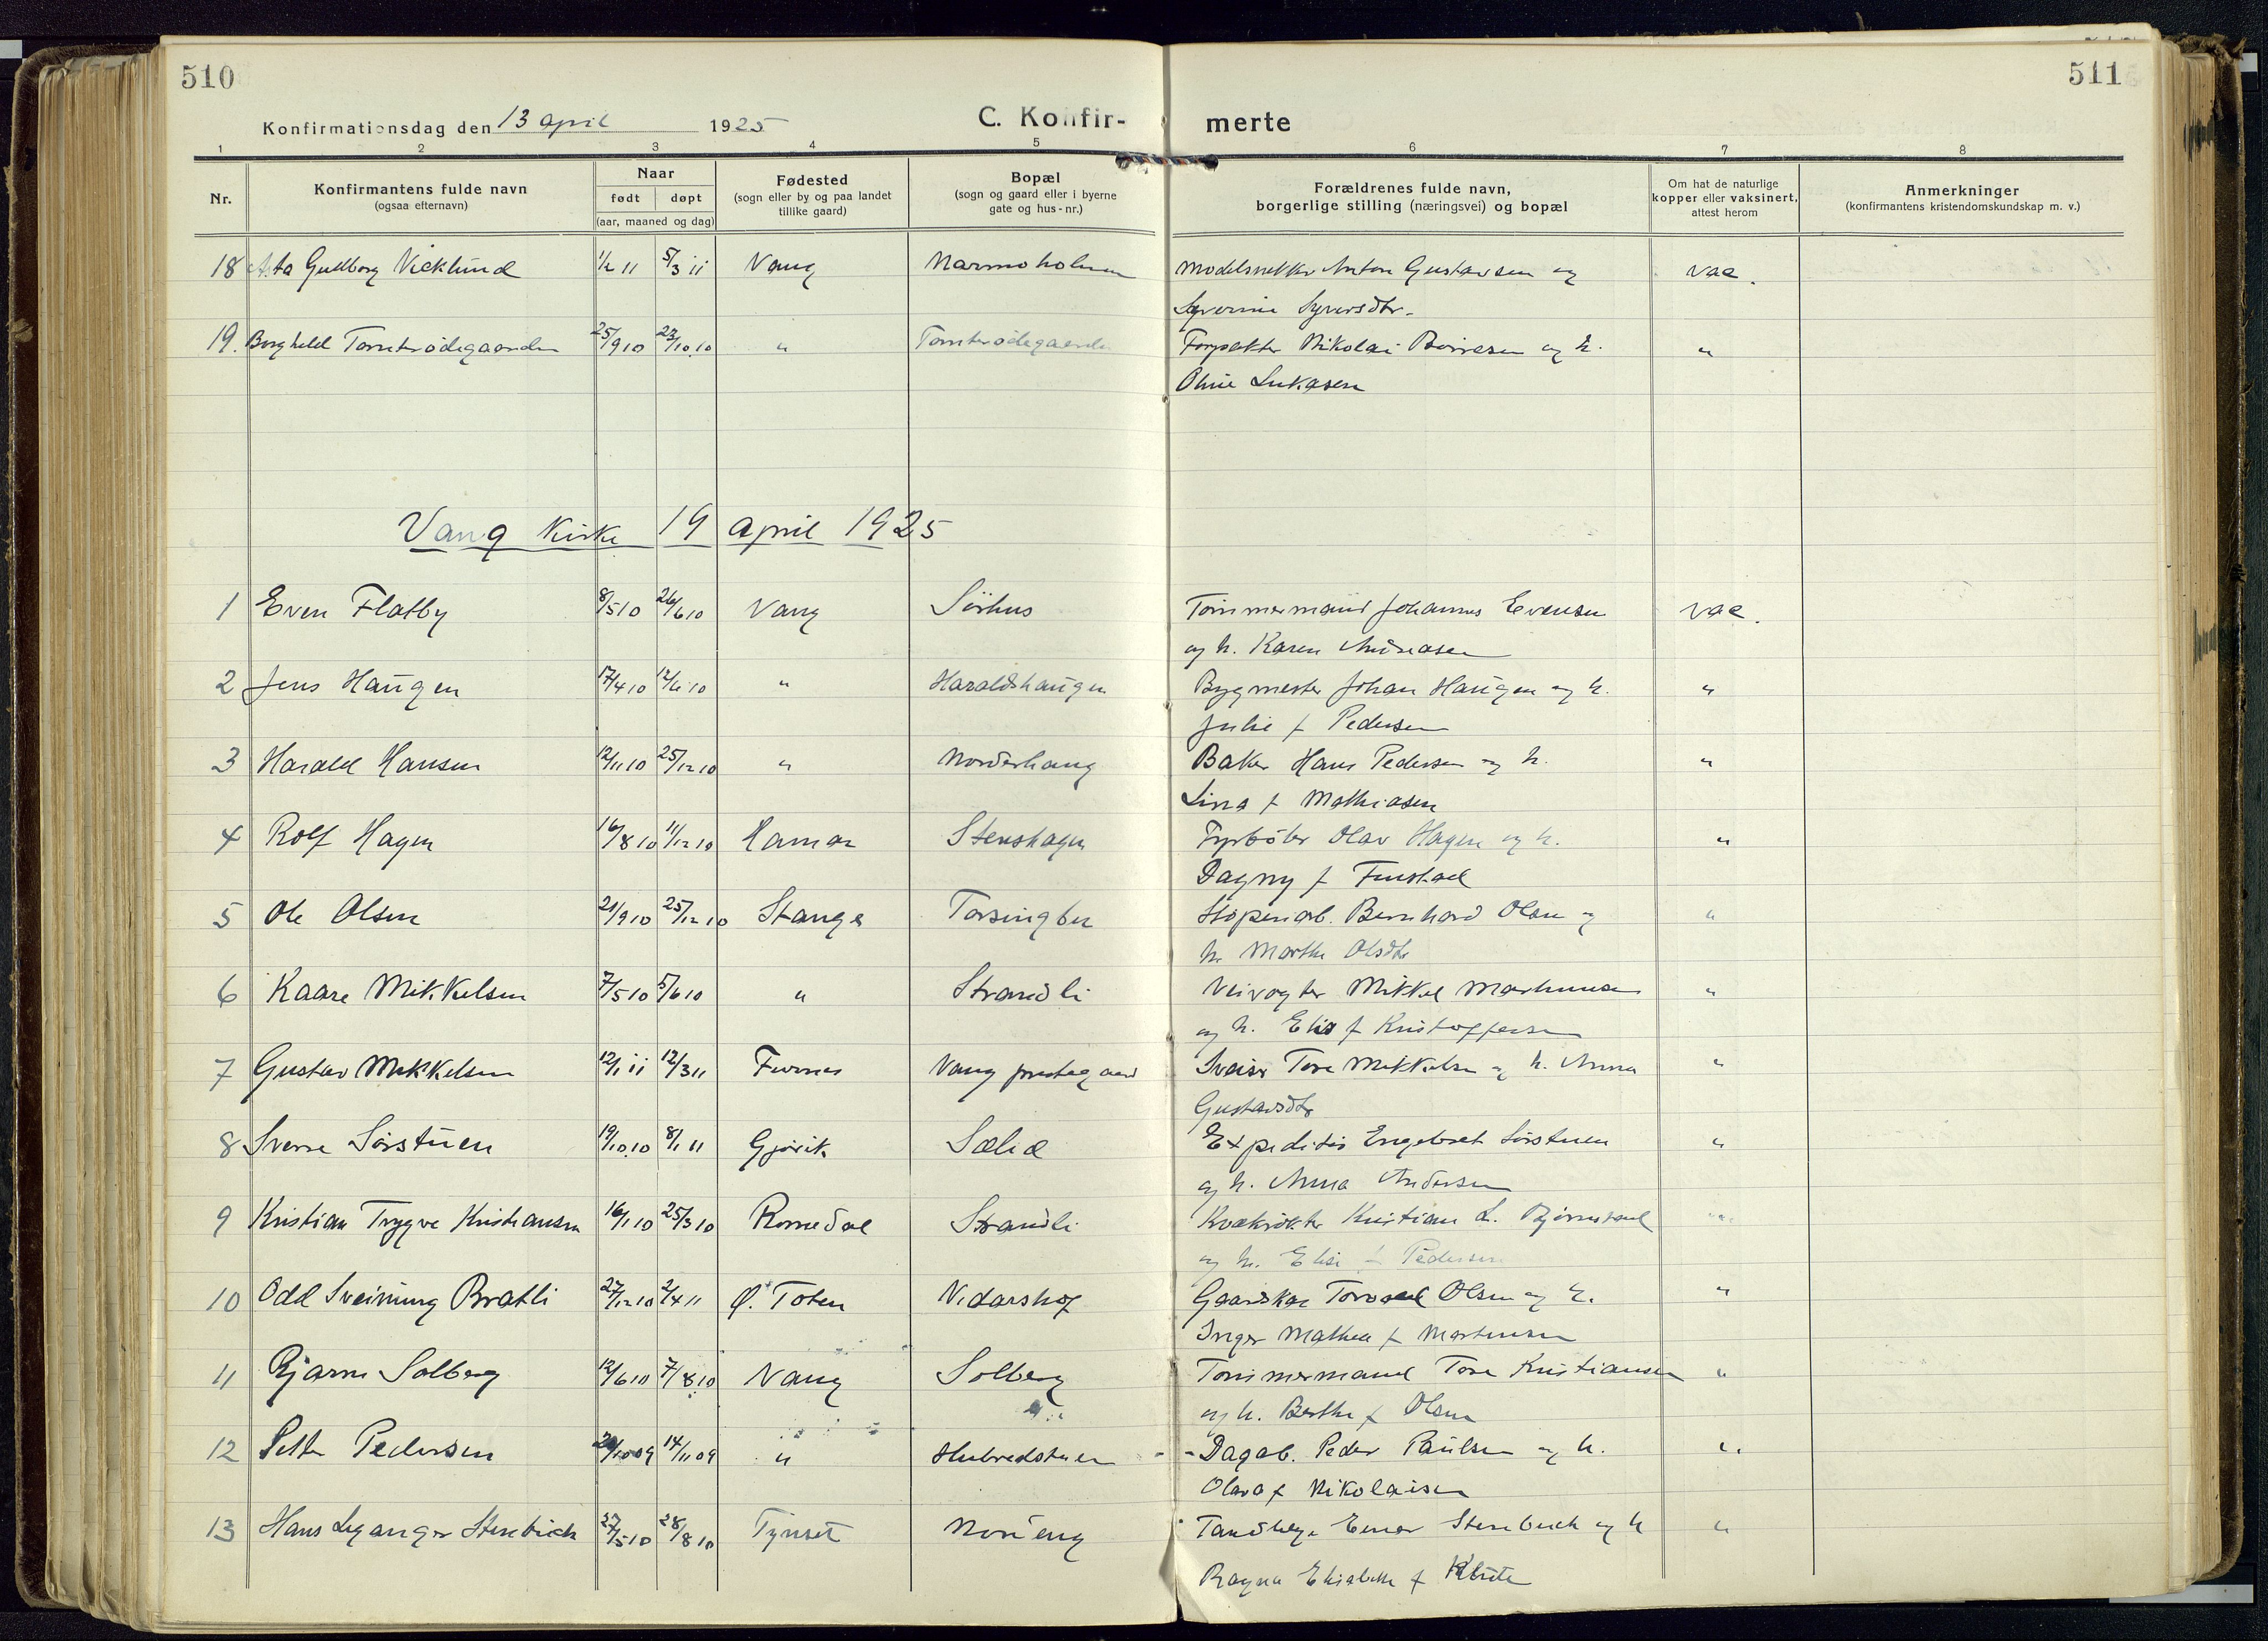 510
511
Konfirmationsdag den 13 april 1925
C. Konfir-
merte
1 2 3 4 5 6 7 8
Nr.
Konfirmantens fulde navn
(ogsaa efternavn)
Naar
født døpt
(aar, maaned og dag)
Fødested
(sogn eller by og paa landet
tillike gaard)
Bopæl
(sogn og gaard eller i byerne
gate og hus-nr.)
Forældrenes fulde navn,
borgerlige stilling (næringsvei) og bopæl
Om hat de naturlige
kopper eller vaksinert,
attest herom
Anmerkninger
(konfirmantens kristendomskundskap m. v.)
18 Asta Gudborg Vicklund 1/2 11 5/3 11 Vang Marmoholmen Modelsnekker Anton Gustavsen og vac.
Syverine Syversdtr.
19. Borghild Tomterødegaarden 25/9 10 23/10 10 " Tomterødegaarden Forpakter Nikolai Børresen og h. "
Oline Lukasen
Vang Kirke 19 april 1925
1 Even Flatby 8/5 10 26/6 10 Vang Sørhus Tømmermand Johannes Evensen vac.
og h. Karen Andreasen
2 Jens Haugen 17/4 10 12/6 10 " Haraldshaugen Bygmester Johan Haugen og h. "
Julie f Pedersen
3 Harald Hansen 12/11 10 25/12 10 " Norderhaug Baker Hans Pedersen og h. "
Lina f Mathiasen
4 Rolf Hagen 16/8 10 11/12 10 Hamar Stenshagen Fyrbøter Olav Hagen og h. "
Dagny f Finstad
5 Ole Olsen 21/9 10 25/12 10 Stange Torsingbu Støperiarb. Bernhard Olsen og "
h. Marthe Olsdtr
6 Kaare Mikkelsen 7/5 10 5/6 10 " Strandli Veivogter Mikkel Martinusen "
og h. Elis f Kristoffersen
7 Gustav Mikkelsen 12/1 11 12/3 11 Furnes Vang prestegaard Sveiser Tore Mikkelsen og h. Anna "
Gustavsdtr
8 Sverre Sørstuen 19/10 10 8/1 11 Gjøvik Sælid Expeditør Engebret Sørstuen "
og h. Anna Andersen
9 Kristian Trygve Kristiansen 16/1 10 25/3 10 Romedal Strandli Kvækrøkter Kristian L. Bjørnstad "
og h. Elise f Pedersen
10 Odd Sveinung Bratli 27/12 10 2/4 11 Ø. Toten Vidarshof Gaardskar Torvald Olsen og h. "
Inger Mathea f Martinsen
11 Bjarne Solberg 12/6 10 7/8 10 Vang Solberg Tømmermand Tore Kristiansen "
og h. Berthe f Olsen
12 Petter Pedersen 20/10 09 14/11 09 " Hubredstuen Dagab. Peder Paulsen og h. "
Olava f Nikolaisen
13 Hans Leganger Stenbuch 27/5 10 28/8 10 Tynset Noreng Tandlege Einar Stenbuch og h "
Ragna Elisabeth f